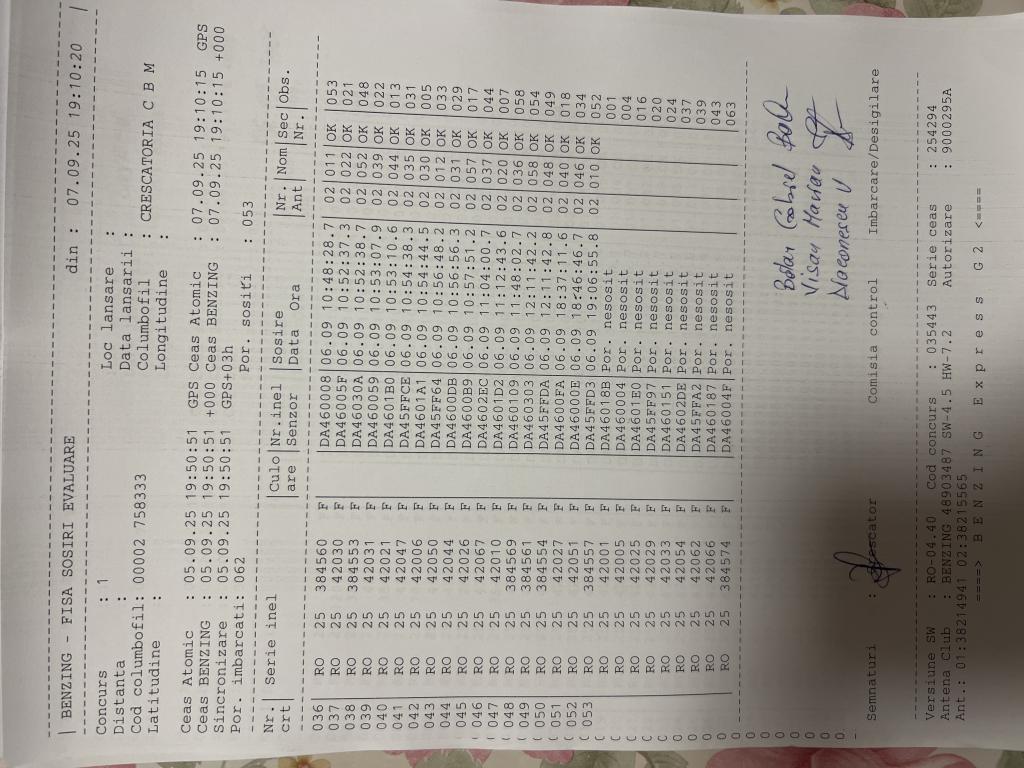 | BENZING - FISA SOSIRI EVALUARE din : 07.09.25 19:10:20 |
Concurs : 1 Loc lansare :
Distanta : Data lansarii :
Cod columbofil: 00002 758333 Columbofil : CRESCATORIA C B M
Latitudine : Longitudine :
Ceas Atomic : 05.09.25 19:50:51 GPS Ceas Atomic : 07.09.25 19:10:15 GPS
Ceas BENZING : 05.09.25 19:50:51 +000 Ceas BENZING : 07.09.25 19:10:15 +000
Sincronizare : 05.09.25 19:50:51 GPS+03h
Por. imbarcati: 062 Por. sositi : 053
Nr.| Serie inel |Culo|Nr.inel |Sosire |Nr. |Nom|Sec|Obs.
crt| |are |Senzor |Data ora |Ant | | |Nr.|
036 | RO 25 384560 F |DA460008|06.09 10:48:28.7| 02|011|OK |053
037 | RO 25 42030 F |DA46005F|06.09 10:52:37.3| 02|022|OK |021
038 | RO 25 384553 F |DA46030A|06.09 10:52:38.7| 02|052|OK |048
039 | RO 25 42031 F |DA460059|06.09 10:53:07.9| 02|039|OK |022
040 | RO 25 42021 F |DA4601B0|06.09 10:53:10.6| 02|044|OK |013
041 | RO 25 42047 F |DA45FFCE|06.09 10:54:38.3| 02|035|OK |031
042 | RO 25 42006 F |DA4601A1|06.09 10:54:44.5| 02|030|OK |005
043 | RO 25 42050 F |DA45FF64|06.09 10:56:48.2| 02|012|OK |033
044 | RO 25 42044 F |DA4600DB|06.09 10:56:56.3| 02|031|OK |029
045 | RO 25 42026 F |DA4600B9|06.09 10:57:51.2| 02|057|OK |017
046 | RO 25 42067 F |DA4602EC|06.09 11:04:00.7| 02|037|OK |044
047 | RO 25 42010 F |DA4601D2|06.09 11:12:43.6| 02|020|OK |007
048 | RO 25 384569 F |DA460109|06.09 11:48:02.7| 02|036|OK |058
049 | RO 25 384561 F |DA460303|06.09 12:11:42.2| 02|058|OK |054
050 | RO 25 384554 F |DA45FFDA|06.09 12:11:42.8| 02|048|OK |049
051 | RO 25 42027 F |DA4600FA|06.09 18:37:11.6| 02|040|OK |018
052 | RO 25 42051 F |DA46000E|06.09 18:46:46.7| 02|046|OK |034
053 | RO 25 384557 F |DA45FFD3|06.09 19:06:55.8| 02|010|OK |052
RO 25 42001 F |DA46018B|Por. nesosit 001
RO 25 42005 F |DA460004|Por. nesosit 004
RO 25 42025 F |DA4601E0|Por. nesosit 016
RO 25 42029 F |DA45FF97|Por. nesosit 020
RO 25 42033 F |DA460151|Por. nesosit 024
RO 25 42054 F |DA4602DE|Por. nesosit 037
RO 25 42062 F |DA45FFA2|Por. nesosit 039
RO 25 42066 F |DA460187|Por. nesosit 043
RO 25 384574 F |DA46004F|Por. nesosit 063
Gabriel
Visan Marian
Diaconescu V
Semnaturi : Crescator Comisia control Imbarcare/Desigilare
Versiune SW : RO-04.40 Cod concurs : 035443 Serie ceas : 254294
Antena Club : BENZING 48903487 SW-4.5 HW-7.2 Autorizare : 9000295A
Ant.: 01:38214941 02:38215565
====> B E N Z I N G E x p r e s s G 2 <====